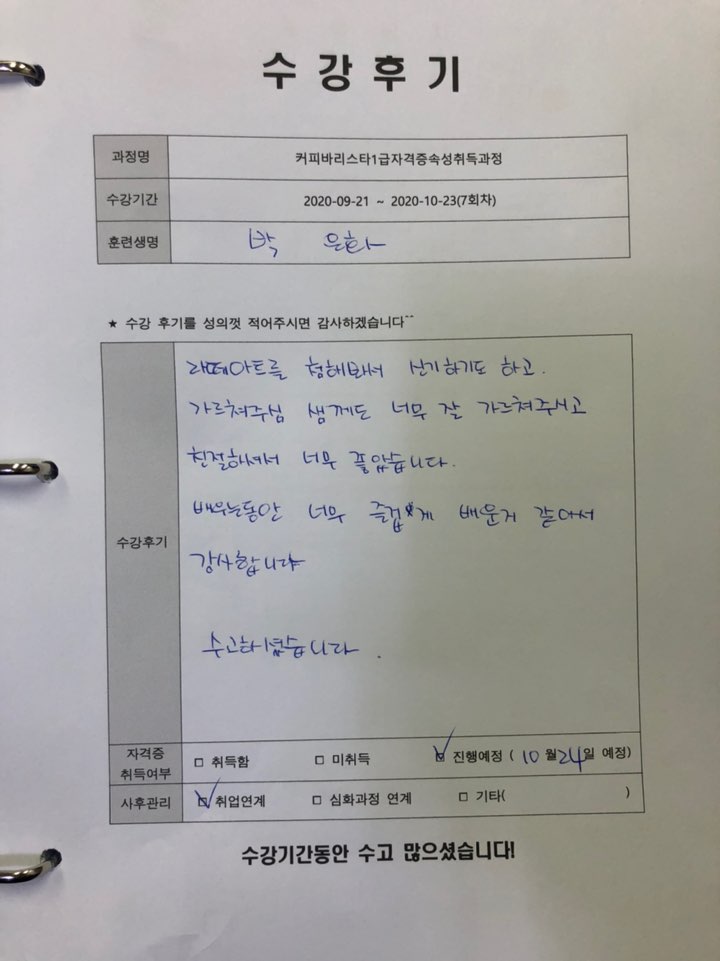 수 강 후 기
과정명 커피바리스타1급자격증속성취득과정
수강기간 2020-09-21 ~ 2020-10-23(7회차)
훈련생명 박 은화
★ 수강 후기를 성의껏 적어주시면 감사하겠습니다^^
수강후기
라떼아트를 첨해봐서 신기하기도 하고.
가르쳐주심 샘께도 너무 잘 가르쳐주시고
친절하셔서 너무 좋았습니다.
배우는동안 너무 즐겁게 배운거 같아서
감사합니다
수고하셨습니다.
자격증 취득여부 □ 취득함 □ 미취득 ☑ 진행예정 ( 10월24일 예정)
사후관리 ☑ 취업연계 □ 심화과정 연계 □ 기타( )
수강기간동안 수고 많으셨습니다!